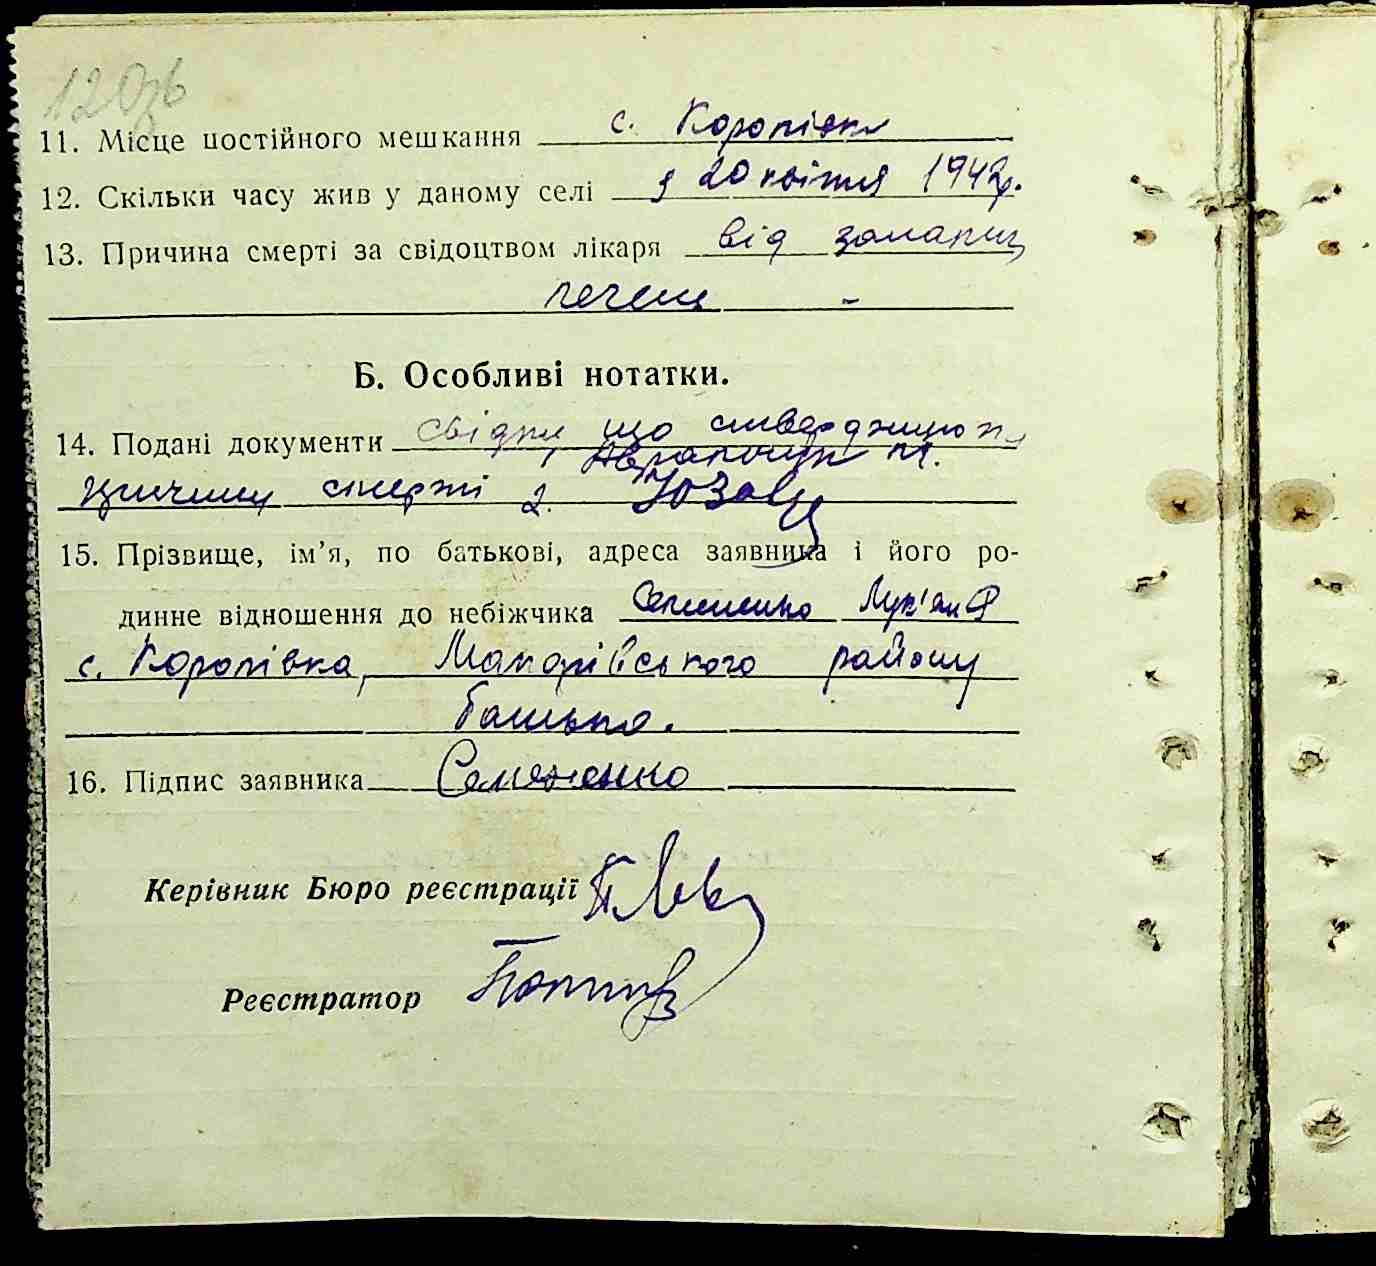 120зв
11. Місце постійного мешкання с. Коропівка
12. Скільки часу жив у даному селі з 20 квітня 1942р.
13. Причина смерті за свідоцтвом лікаря від
печені -
Б. Особливі нотатки.
14. Подані документи свідки що стверджують
смерті
15. Прізвище, ім'я, по батькові, адреса заявника і його ро-
динне відношення до небіжчика Семененко Лук'ян Ф
с. Коропівка, Макарівського району
батько.
16. Підпис заявника Семененко
Керівник Бюро реєстрації
Реєстратор